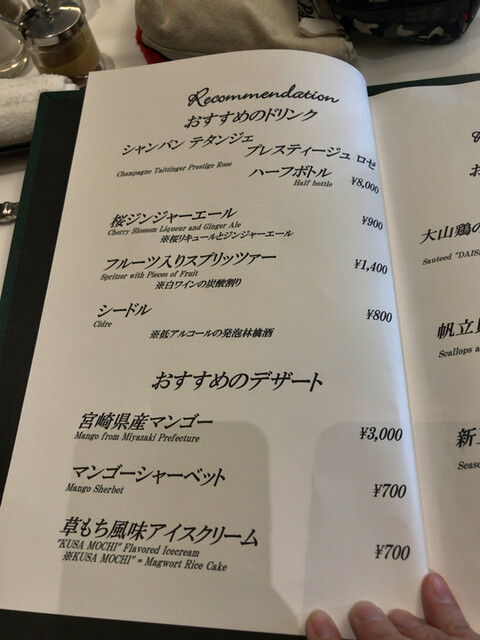 Recommendation
おすすめのドリンク
シャンパン テタンジェ
プレスティージュ ロゼ
Champagne Taittinger Prestige Rose
ハーフボトル
Half bottle
¥8,000
桜ジンジャーエール
Cherry Blossom Liqueur and Ginger Ale
※桜リキュールとジンジャーエール
¥900
フルーツ入りスプリッツァー
Spritzer with Pieces of Fruit
※白ワインの炭酸割り
¥1,400
シードル
Cidre
※低アルコールの発泡林檎酒
¥800
おすすめのデザート
宮崎県産マンゴー
Mango from Miyazaki Prefecture
¥3,000
マンゴーシャーベット
Mango Sherbet
¥700
草もち風味アイスクリーム
"KUSA MOCHI" Flavored Icecream
※KUSA MOCHI" = Magwort Rice Cake
¥700
お
大山鶏の
Sauteed "DAIS
帆立
Scallops a
新
Seaso